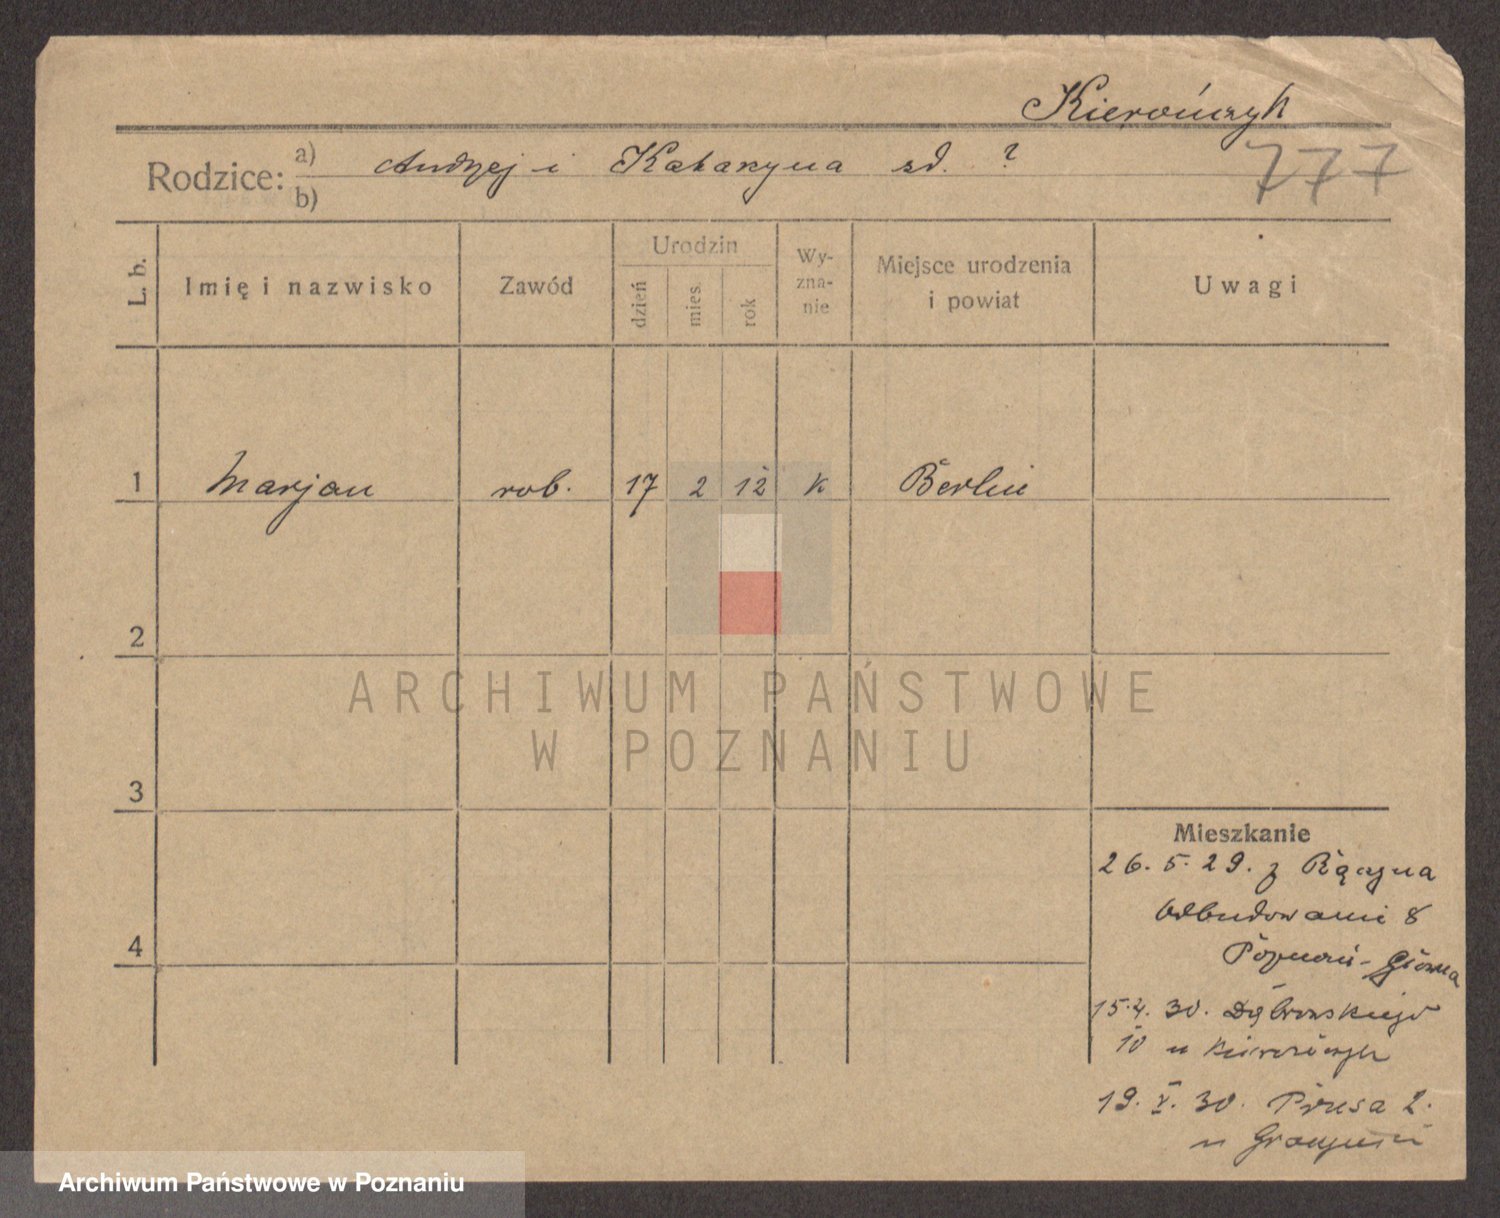 Kierończyk
Rodzice: a) Andrzej i Katarzyna zd. ?
b)
777
L. b.
Imię i nazwisko
Zawód
Urodzin
dzień
mies.
rok
Wy-
zna-
nie
Miejsce urodzenia
i powiat
Uwagi
1 Marjan rob. 17 2 12 k Berlin
2
3
4
ARCHIWUM PAŃSTWOWE
W POZNANIU
Mieszkanie
26.5.29. z
8
Poznań-Główna
15.4.30. Dąbrowskiego
10 u Kierończyk
19.V.30. Prusa 2.
u
Archiwum Państwowe w Poznaniu